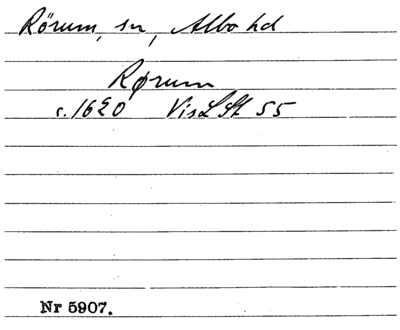 Rörum, sn, Albo hd
Rørum
c. 1620 VisLSk 55
Nr 5907.